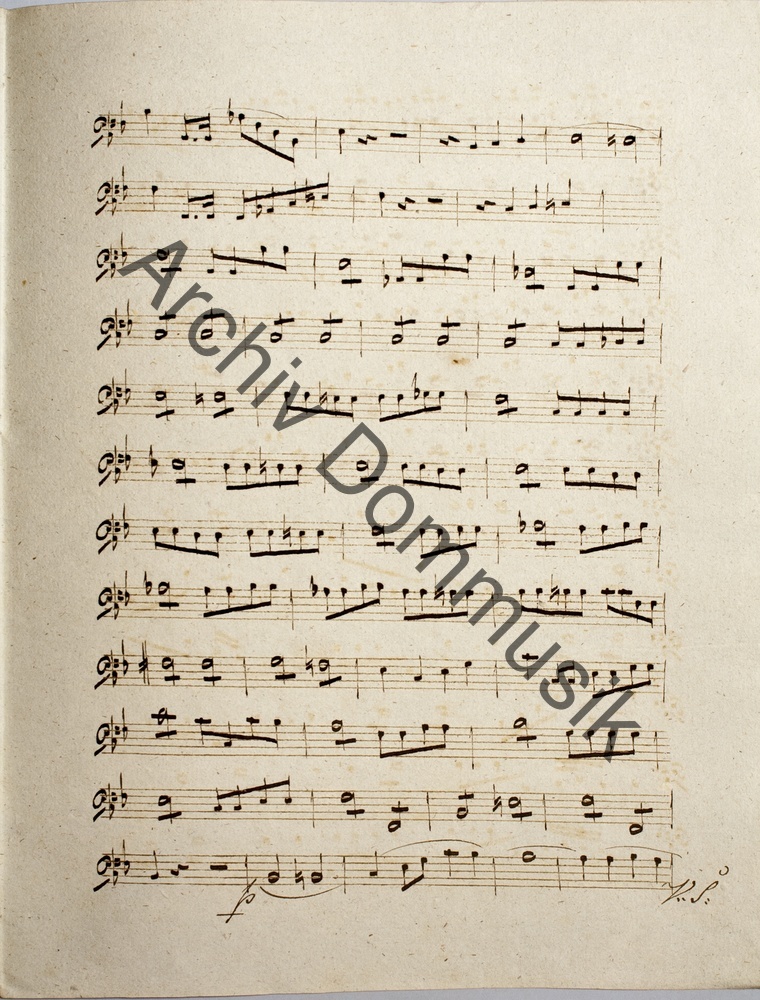 Archiv Dommusik
p
V. S: